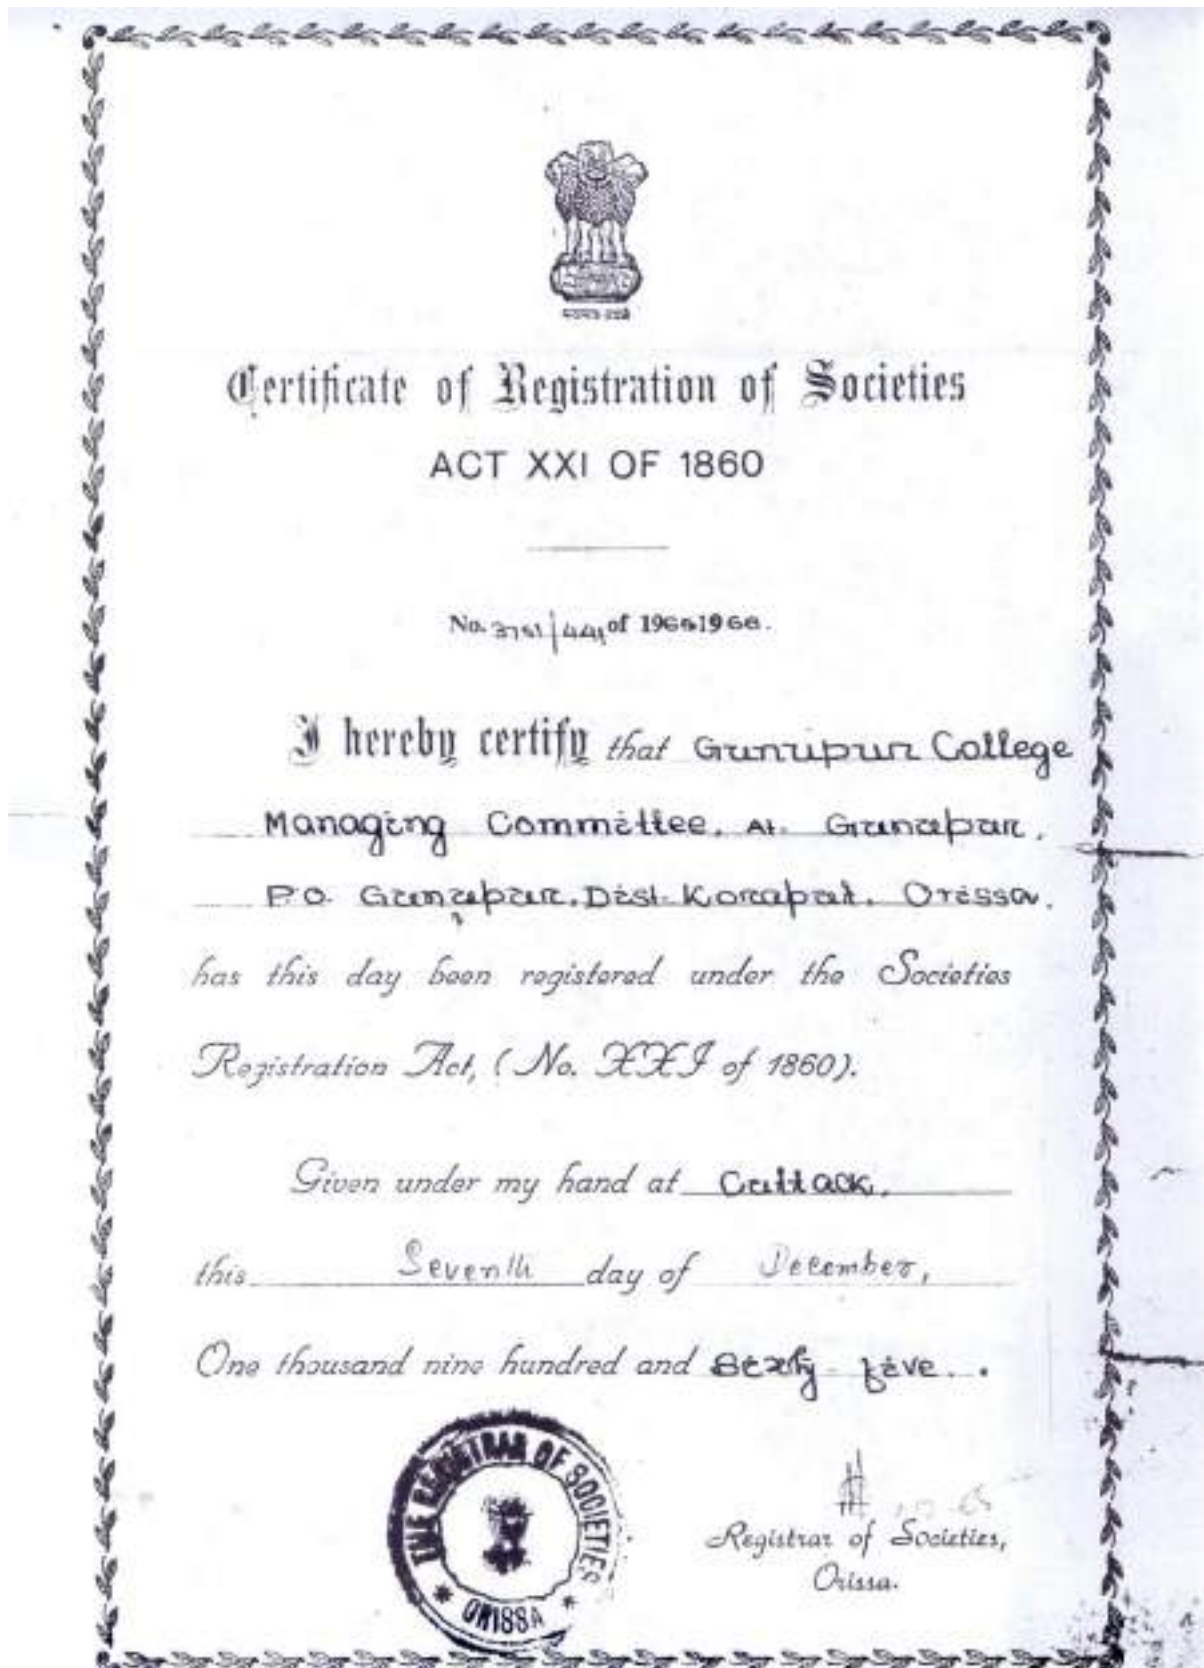 Certificate of Registration of Societies
ACT XXI OF 1860
No. 3751/441 of 1965-1966.
I hereby certify that Gunupur College
Managing Committee, At. Gunupur,
P.O. Gunupur, Dist. Koraput, Orissa,
has this day been registered under the Societies
Registration Act, (No. XXI of 1860).
Given under my hand at Cuttack,
this Seventh day of December,
One thousand nine hundred and Sixty five.
THE REGISTRAR OF SOCIETIES
* ORISSA *
Registrar of Societies,
Orissa.